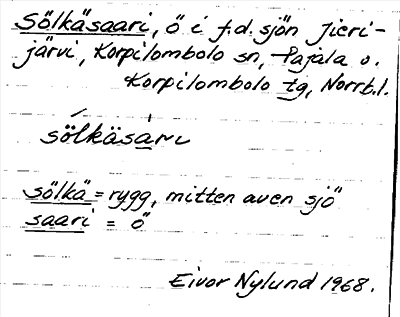 Sölkäsaari, ö i f.d. sjön Jieri-
järvi, Korpilombolo sn, Pajala o.
Korpilombolo tg, Norrb.l.
sölkäsari
sölkä = rygg, mitten av en sjö
saari = ö
Eivor Nylund 1968.